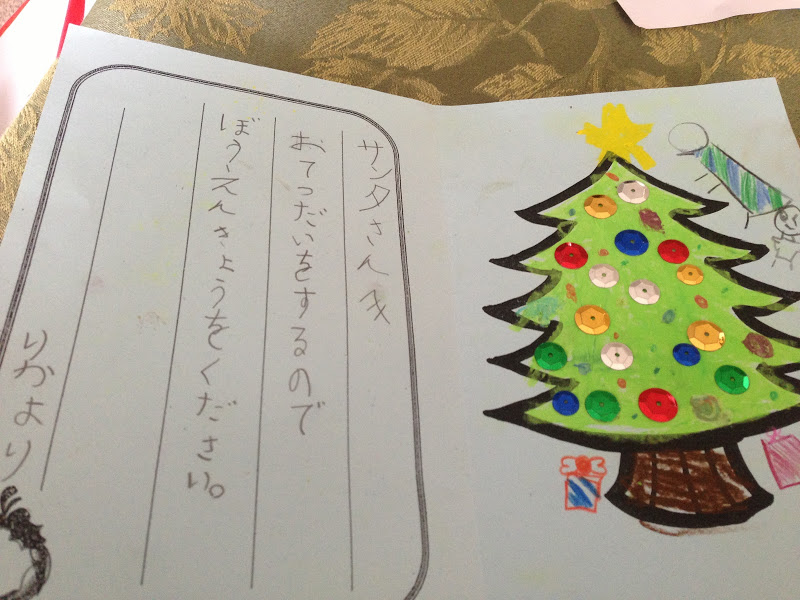 サンタさんえ
おてつだいをするので
ぼうえんきょうをください。
りかより